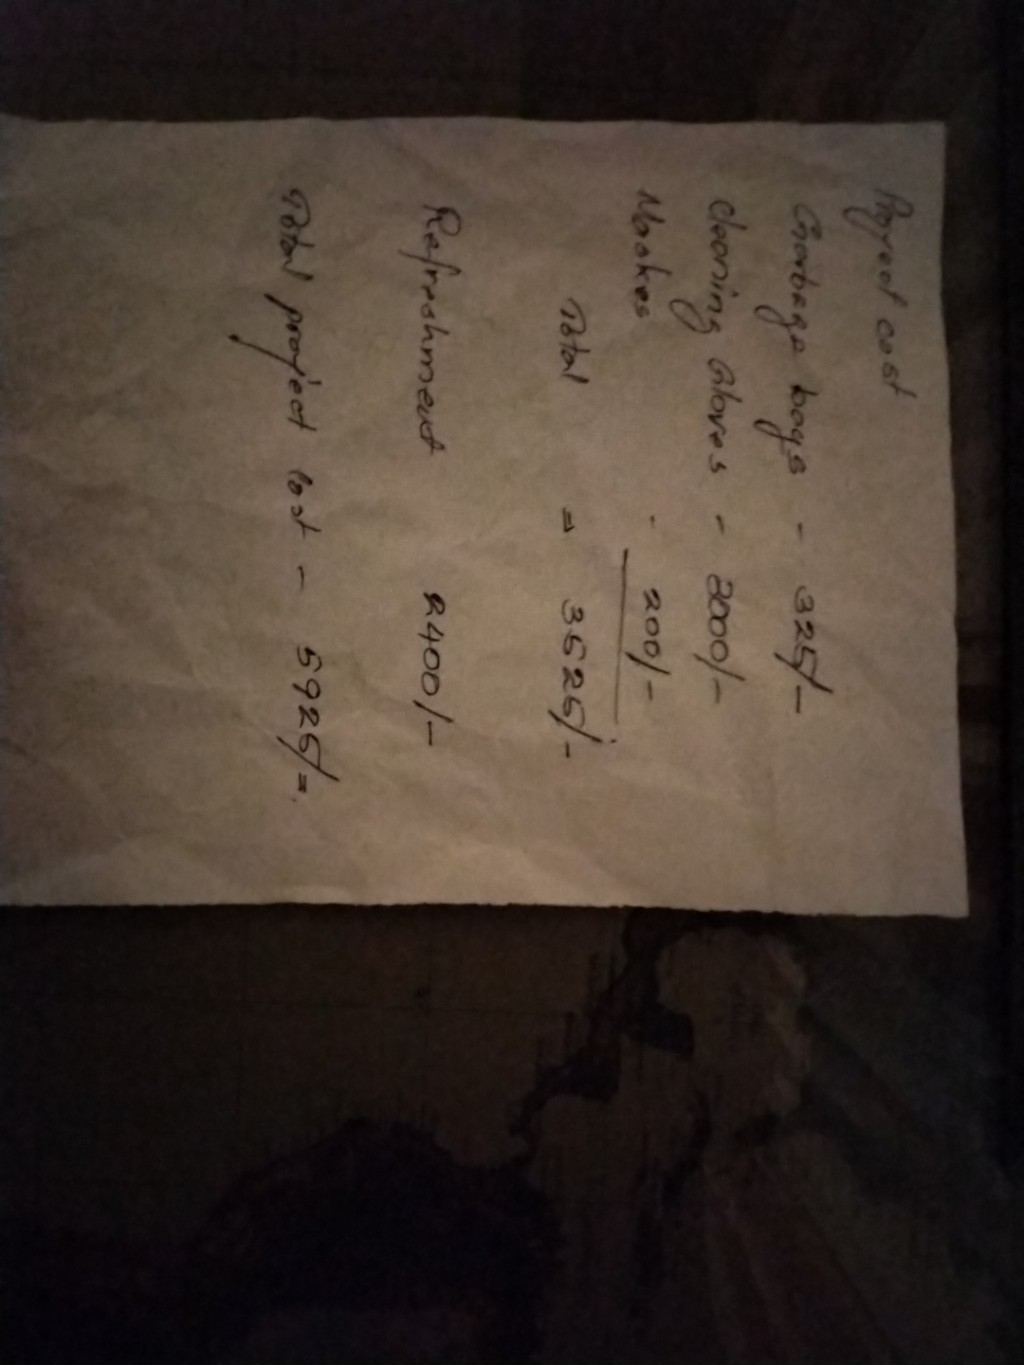 Project cost
Garbage bags - 325/-
Cleaning Gloves - 3000/-
Maskes - 200/-
Total = 3525/-
Refreshment 2400/-
Total project cost - 5925/=